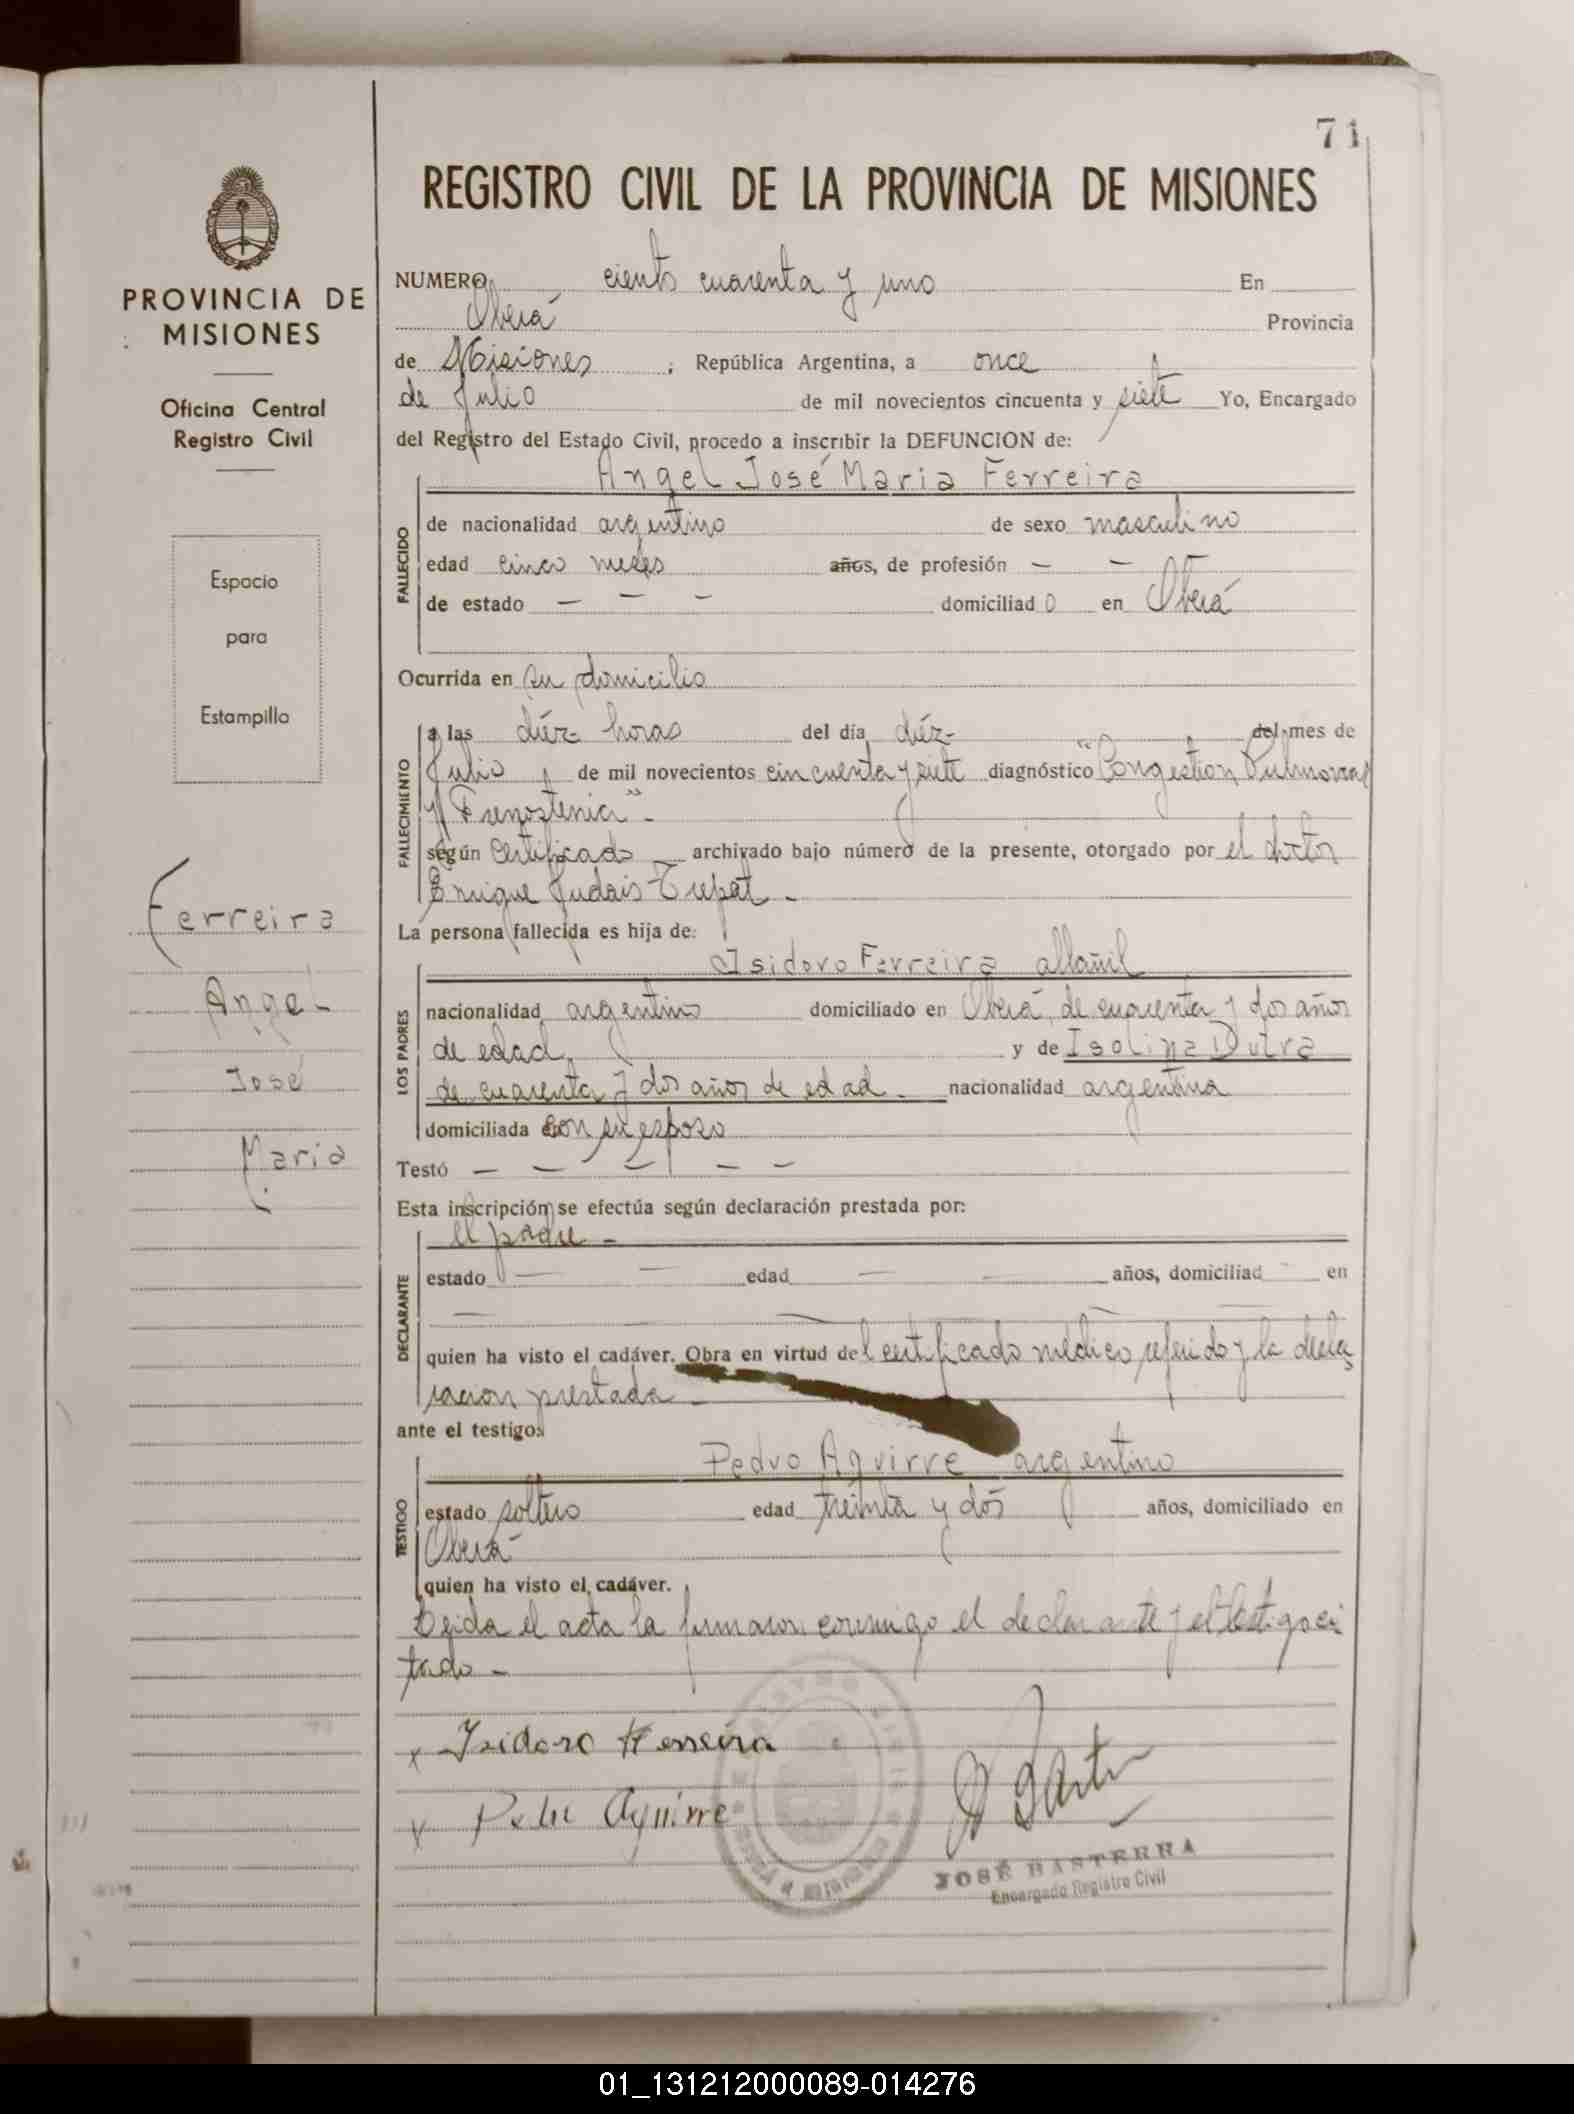 71
REGISTRO CIVIL DE LA PROVINCIA DE MISIONES
PROVINCIA DE
MISIONES
Oficina Central
Registro Civil
Espacio
para
Estampilla
Ferreira
Angel
José
Maria
NUMERO ciento cuarenta y uno En
Oberá Provincia
de Misiones ; República Argentina, a once
de Julio de mil novecientos cincuenta y siete Yo, Encargado
del Registro del Estado Civil, procedo a inscribir la DEFUNCION de:
Angel José Maria Ferreira
FALLECIDO
de nacionalidad argentino de sexo masculino
edad cinco meses años, de profesión — —
de estado — — — domiciliado en Oberá
Ocurrida en su domicilio
FALLECIMIENTO
a las diéz horas del día diéz- del mes de
Julio de mil novecientos cincuenta y siete diagnóstico "Congestion Pulmonar
y
según Certificado archivado bajo número de la presente, otorgado por el doctor
Enrique Judais Trepat -
La persona fallecida es hija de:
LOS PADRES
Isidoro Ferreira
nacionalidad argentino domiciliado en Oberá, de cuarenta y dos años
de edad, y de Isolina Dutra
de cuarenta y dos años de edad. nacionalidad argentina
domiciliada con su esposo
Testó — — — — —
Esta inscripción se efectúa según declaración prestada por:
DECLARANTE
el padre -
estado — — edad — — años, domiciliad en
— — — —
quien ha visto el cadáver. Obra en virtud del certificado médico referido y la decla
racion prestada -
ante el testigo:
TESTIGO
Pedro Aguirre argentino
estado soltero edad treinta y dos años, domiciliado en
Oberá
quien ha visto el cadáver.
Leida el acta la firmaron conmigo el declarante y el testigo ci
tado -
x Isidoro Ferreira
x Pedro Aguirre
JOSÉ BASTERRA
Encargado Registro Civil
01_131212000089-014276